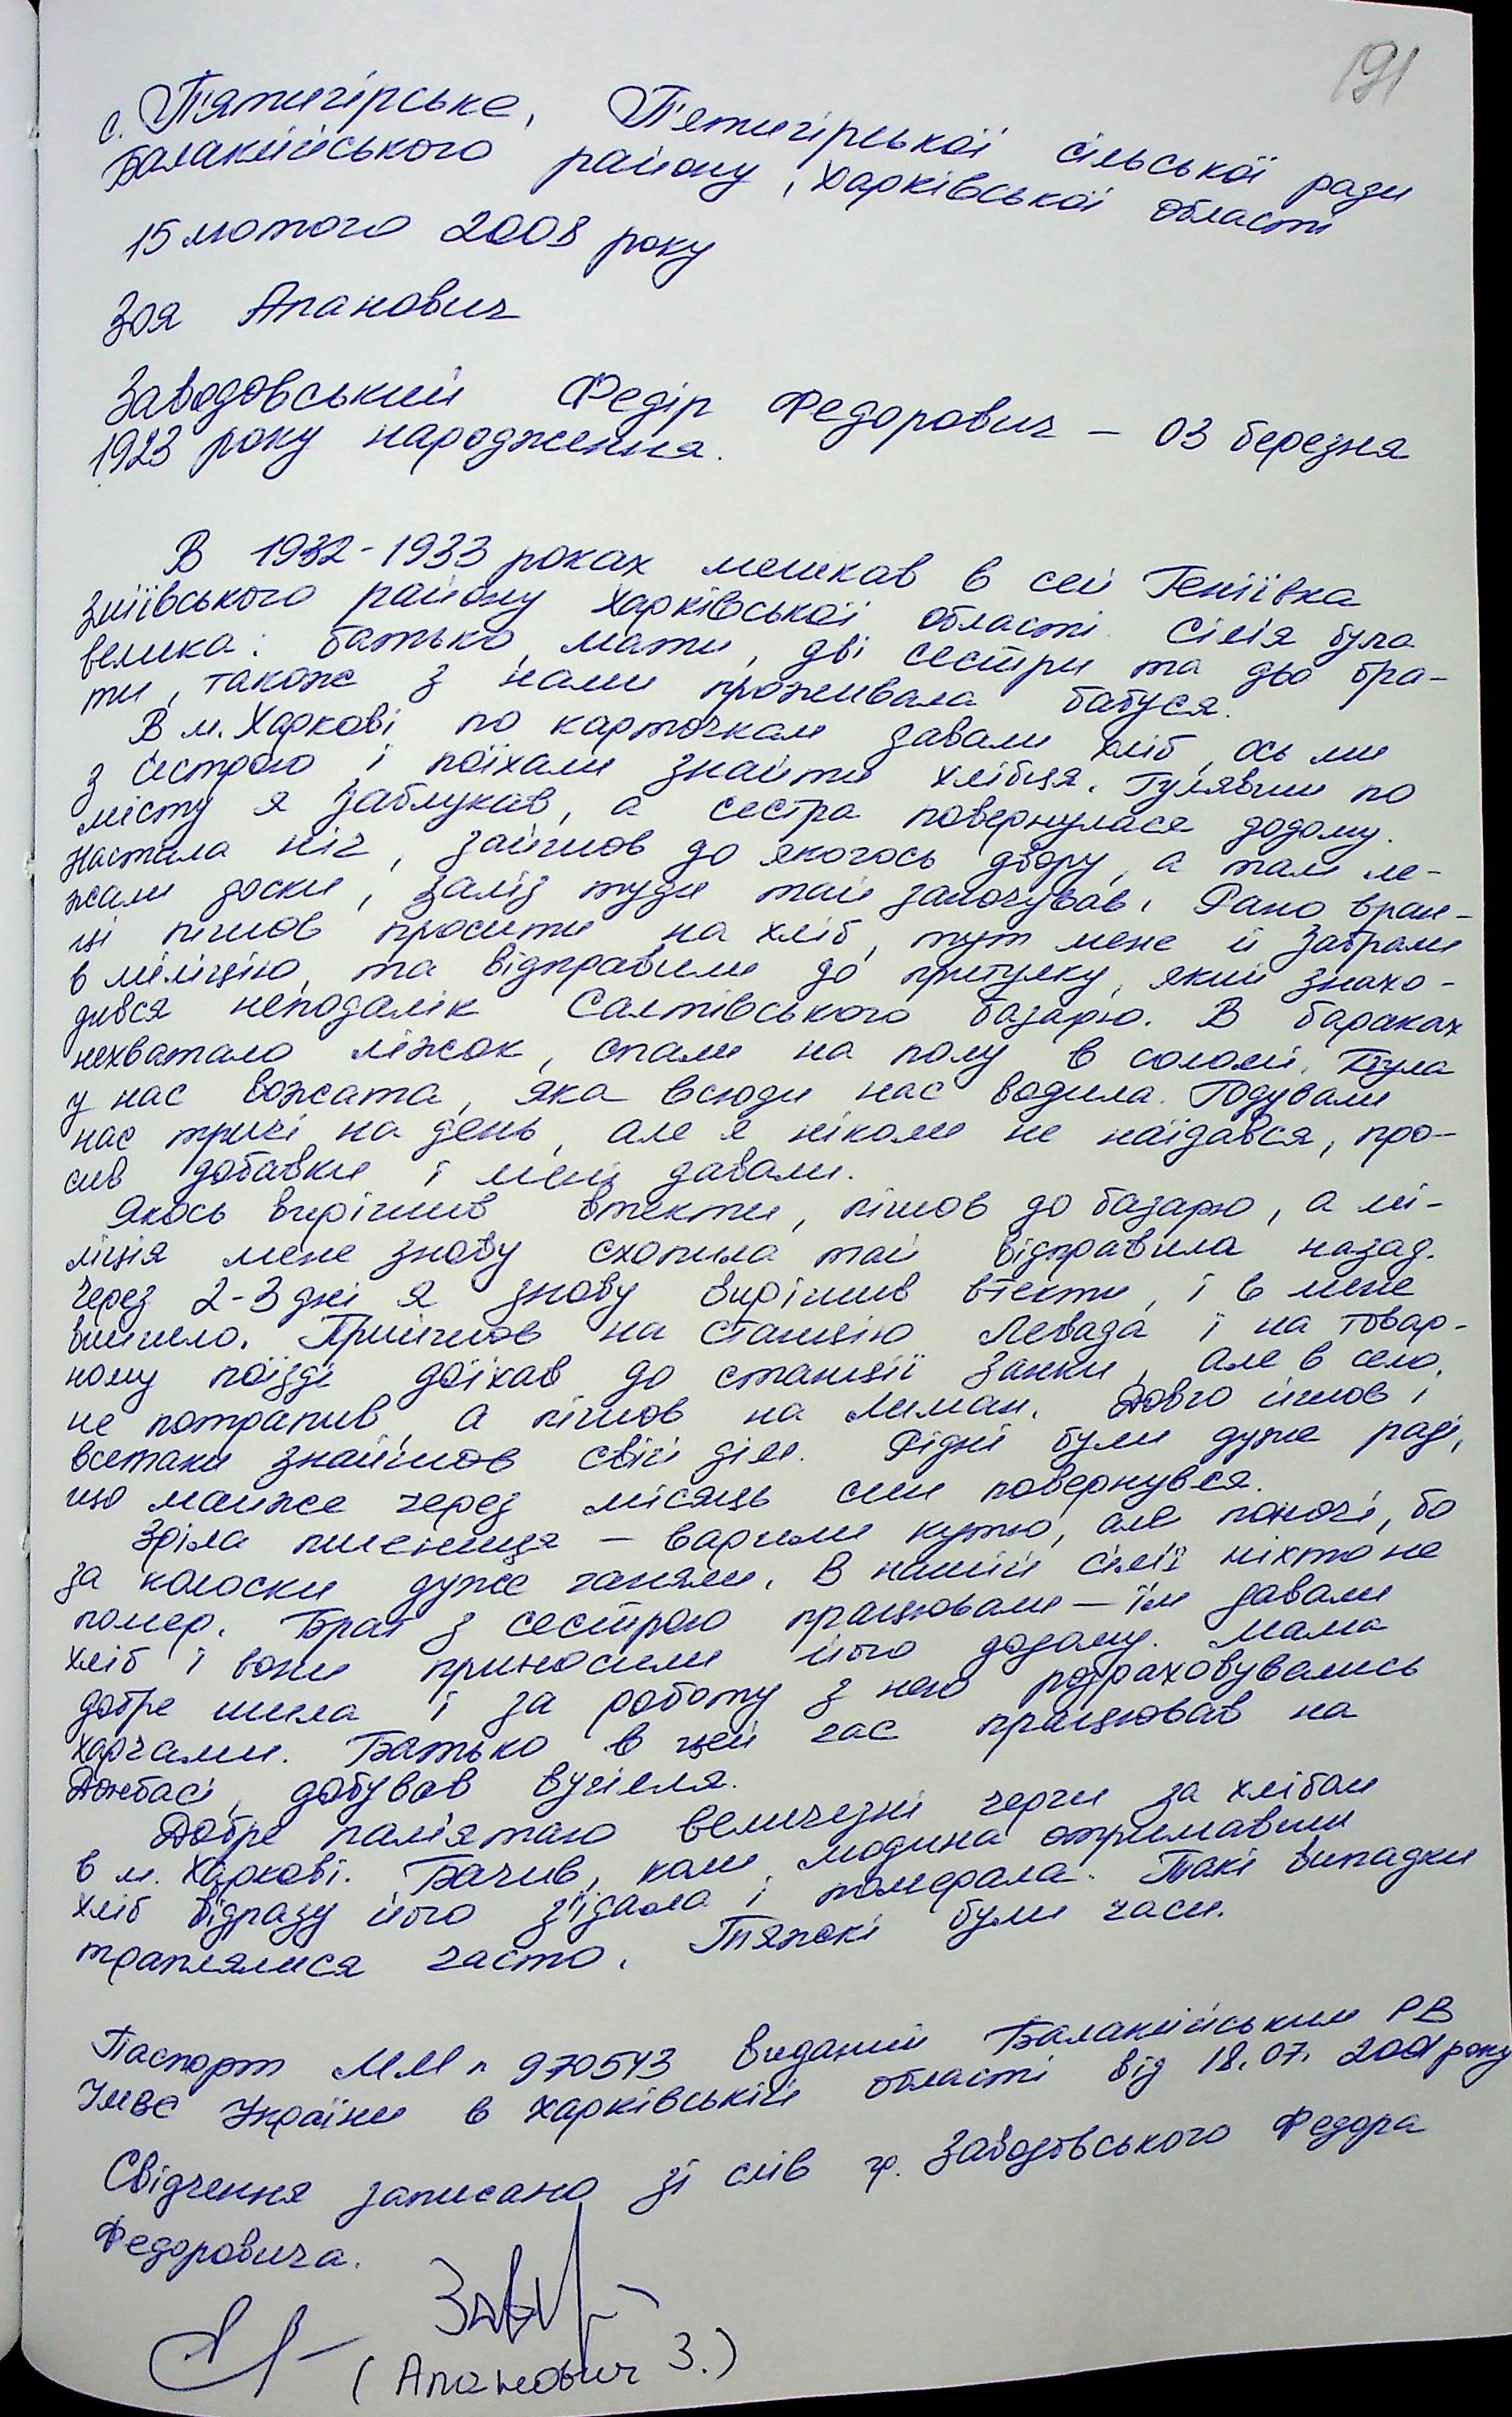 191
с. П'ятигірське, П'ятигірської сільської ради
Балаклійського району, Харківської області
15 лютого 2008 року
Зоя Апанович
Заводовський Федір Федорович – 03 березня
1923 року народження.
В 1932-1933 роках мешкав в селі Геніївка
Зміївського району Харківської області. Сім'я була
велика: батько, мати, дві сестри та два бра-
ти, також з нами проживала бабуся.
В м. Харкові по карточкам давали хліб, ось ми
з сестрою і поїхали знайти хлібця. Гулявши по
місту я заблукав, а сестра повернулася додому.
Настала ніч, зайшов до якогось двору, а там ле-
жали доски, заліз туди тай заночував. Рано вран-
ці пішов просити на хліб, тут мене й забрали
в міліцію, та відправили до притулку, який знахо-
дився неподалік Салтівського базарю. В бараках
нехватало ліжок, спали на полу в соломі. Була
у нас вожата, яка всюди нас водила. Годували
нас тричі на день, але я ніколи не наїдався, про-
сив добавки і мені давали.
Якось вирішив втекти, пішов до базарю, а мі-
ліція мене знову схопила тай відправила назад.
Через 2-3 дні я знову вирішив втекти, і в мене
вийшло. Прийшов на станцію Левада і на товар-
ному поїзді доїхав до станції Занки, але в село
не потрапив, а пішов на Лиман. Довго йшов і
всетаки знайшов свій дім. Рідні були дуже раді,
що майже через місяць син повернувся.
Зріла пшениця – варили кутю, але поночі, бо
за колоски дуже ганяли. В нашій сім'ї ніхто не
помер. Брат з сестрою працювали – їм давали
хліб і вони приносили його додому. Мама
добре шила і за роботу з нею розраховувались
харчами. Батько в цей час працював на
Донбасі, добував вугілля.
Добре пам'ятаю величезні черги за хлібом
в м. Харкові. Бачив, коли людина отримавши
хліб відразу його з'їдала і померала. Такі випадки
траплялися часто. Тяжкі були часи.
Паспорт ММ № 970543 виданий Балаклійським РВ
УМВС України в Харківській області від 18.07. 2001 року
Свідчення записано зі слів гр. Заводовського Федора
Федоровича.
(Апанович З.)